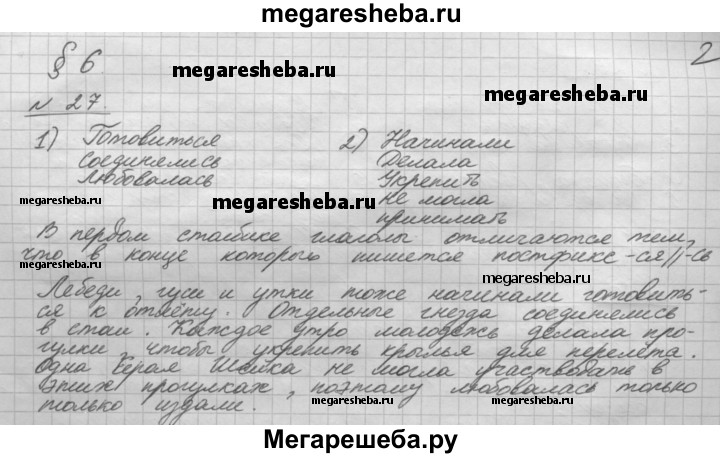 megaresheba.ru
§ 6.
2
megaresheba.ru
megaresheba.ru
N 27.
1) Готовиться
Соединялись
Любовалась
2) Начинали
Делала
Укрепить
Не могла
принимать
megaresheba.ru
megaresheba.ru
megaresheba.ru
В первом столбике глаголы отличаются тем,
что в конце которых пишется постфикс -ся//-сь
megaresheba.ru
Лебеди, гуси и утки тоже начинали готовить-
ся к отлёту. Отдельные гнезда соединялись
в стаи. Каждое утро молодежь делала про-
гулки, чтобы укрепить крылья для перелёта.
megaresheba.ru
Одна Серая Шейка не могла участвовать в
этих прогулках, поэтому любовалась только
только издали.
megaresheba.ru
megaresheba.ru
Мегарешеба.ру